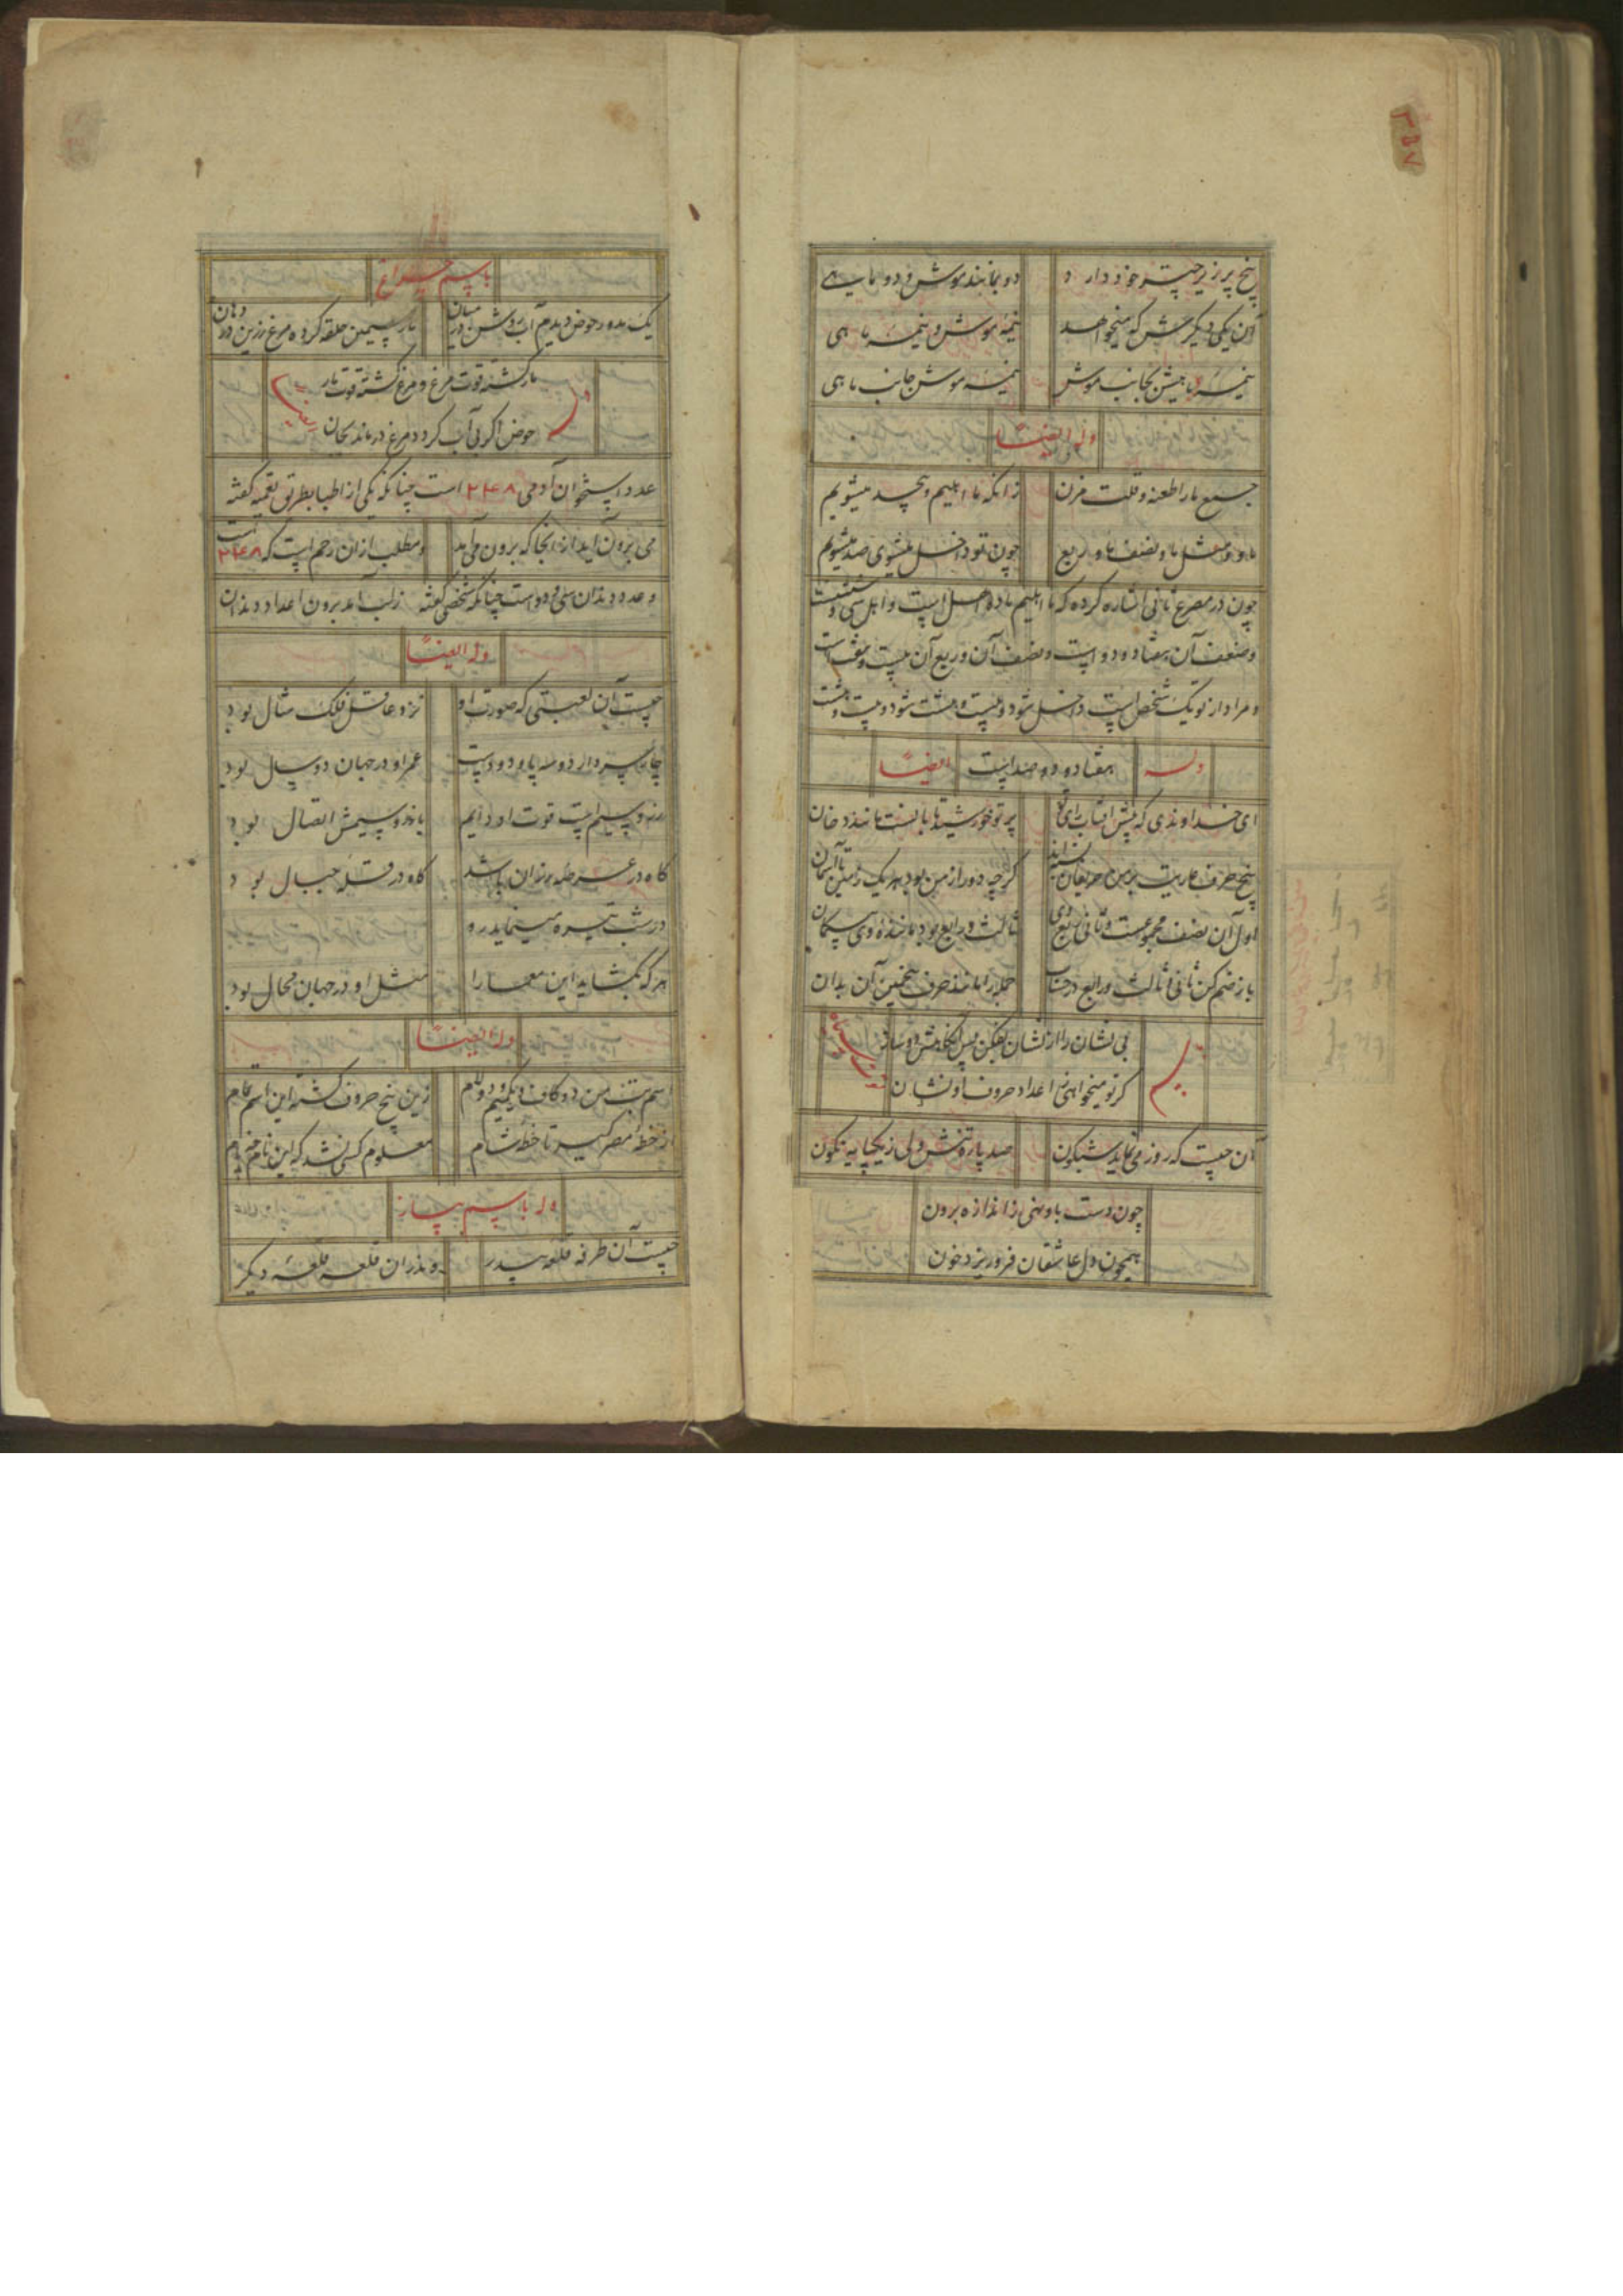 پنج پر زیر چتر خود دارد
دو بمانند موش و دو ماهی
آن یکی دیگرش که میخواهد
نیمهٔ موش و نیمهٔ ماهی
نیمهٔ ماهیش بجانب موش
نیمهٔ موش جانب ماهی
وله ایضاً
جمیع ما را طعنه و قلت مزن
زانکه ما اهلیم و بیحد میشویم
ما و مثل ما و نصف ما و ربع
چون تو داخل میشوی صد میشویم
چون در مصرع ثانی اشاره کرده که ما اهلیم ماده اهل است و اهل سی و شش است
و ضعف آن هفتاد و دو است و نصف آن و ربع آن بیست و هفت است
و مراد از تو یک شخص است داخل شود و بیست و هشت شود و بیست و هشت
وله
هفتاد و دو صد است
ایضاً
ای خداوندی که پیش آفتاب رای تو
پنج حرف عاریت بر من حریفان
گرچه دور از من بود هر یک زمین تا آسمان
اول آن نصف مجموعست و ثانی ربع وی
ثالث و رابع بود مانندهٔ وی بیگمان
باز ضم کن ثانی و ثالث و رابع در حساب
جمله را مانند حرف پنجمین آن بدان
بی نشان را از نشان
گر تو میخواهی اعداد حروف او نشان
آن چیست که روز می نماید شبگون
صد پاره تنش ولی ز یکپایه نگون
چون دست باو نهی ز اندازه برون
همچون دل عاشقان فرو ریزد خون
باسم چراغ
یک بدور حوض دیدم آب روشن در میان
مار سیمین حلقه کرده مرغ زرین در دهان
مار گشته قوت مرغ و مرغ گشته قوت مار
حوض اگر بی آب گردد مرغ درماند بجان
عدد استخوان آدمی ۲۴۸ است چنانکه یکی از اطبا بطریق تعمیه گفته
می برون آید از آنجا که برون می آید
و مطلب از آن رحم است که ۲۴۸ است
و عدد دندان سی و دو است چنانکه شخصی گفته ز لب آمد برون اعداد دندان
وله ایضاً
چیست آن لعبتی که صورت او
نزد عاقل فلک مثال بود
چار سر دارد و سه پا و دو دست
عمر او در جهان دو سال بود
زر و سیم است قوت او دایم
با زر و سیمش اتصال بود
گاه در عرصه باشد
گاه در قلهٔ جبال بود
در شب تیره مینماید رو
هر که بگشاید این معما را
مثل او در جهان محال بود
وله ایضاً
اسم بت من دو کاف و یکمیم و دو لام
زین پنج حروف گشته این اسم تمام
از خطهٔ مصر گیر تا خطهٔ شام
معلوم کسی نشد که این نام چه نام
وله باسم پیاز
چیست آن طرفه قلعه بیدر
وندران قلعه قلعهٔ دیگر